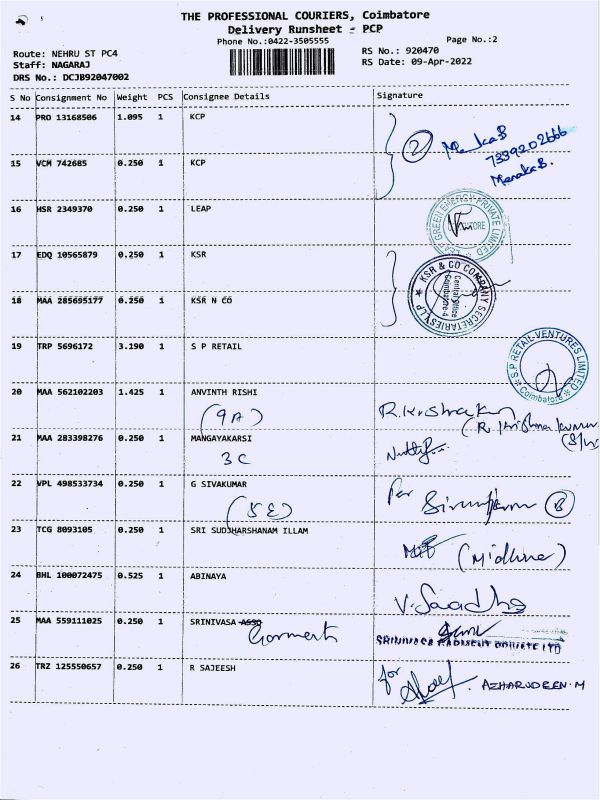 THE PROFESSIONAL COURIERS, Coimbatore
Delivery Runsheet - PCP
Phone No.:0422-3505555
Page No.:2
Route: NEHRU ST PC4
RS No.: 920470
Staff: NAGARAJ
RS Date: 09-Apr-2022
DRS No.: DCJB92047002
S No Consignment No Weight PCS Consignee Details Signature
14 PRO 13168506 1.095 1 KCP
2
7339202666
Menaka B.
15 VCM 742685 0.250 1 KCP
16 HSR 2349370 0.250 1 LEAP
LEAP GREEN ENERGY PRIVATE LIMITED
17 EDQ 10565879 0.250 1 KSR
KSR & CO COMPANY SECRETARIES LLP
Central Office
Coimbatore-4
18 MAA 285695177 0.250 1 KSR N CO
19 TRP 5696172 3.190 1 S P RETAIL
S.P RETAIL VENTURES LIMITED
Coimbatore
20 MAA 562102203 1.425 1 ANVINTH RISHI
(9A)
21 MAA 283398276 0.250 1 MANGAYAKARSI
3C
22 VPL 498533734 0.250 1 G SIVAKUMAR
(5E)
23 TCG 8093105 0.250 1 SRI SUDJHARSHANAM ILLAM
24 BHL 100072475 0.525 1 ABINAYA
25 MAA 559111025 0.250 1 SRINIVASA ASSO
Garments
SRINIVASA GARMENT PRIVATE LTD
26 TRZ 125550657 0.250 1 R SAJEESH
for
AZHARUDEEN.M